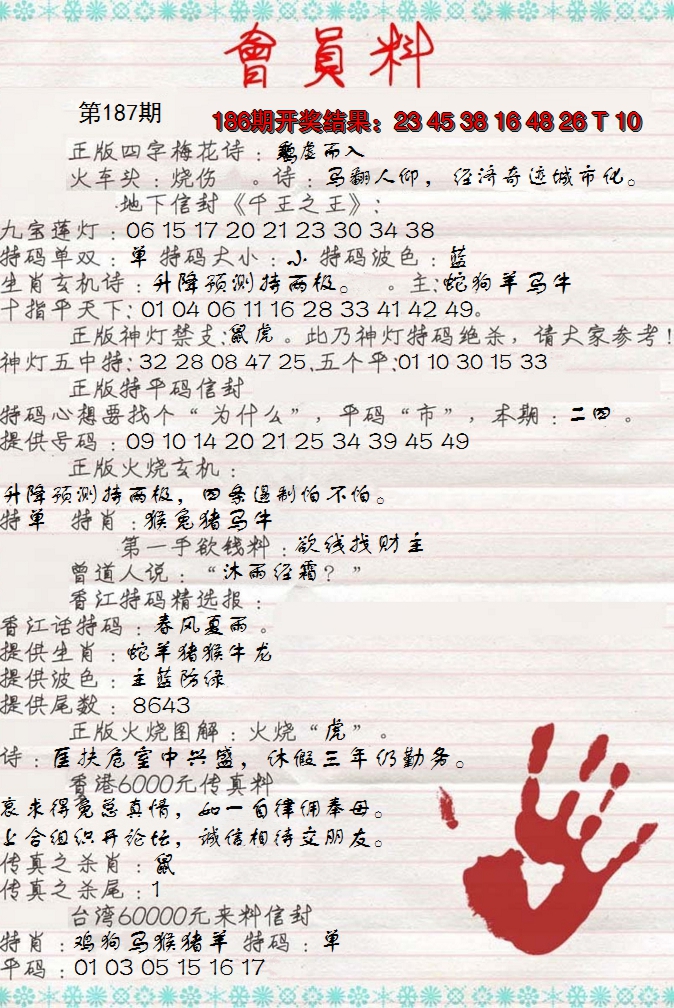 會員料
第187期
186期开奖结果：23 45 38 16 48 26 T 10
正版四字梅花诗：鸡虚而入
火车头：烧伤　。诗：马翻人仰，经济奇迹城市化。
地下信封《千王之王》：
九宝莲灯：06 15 17 20 21 23 30 34 38
特码单双：单 特码大小：小 特码波色：蓝
生肖玄机诗：升降预测持两极。　。主:蛇狗羊马牛
十指平天下: 01 04 06 11 16 28 33 41 42 49。
正版神灯禁支:鼠虎。此乃神灯特码绝杀，请大家参考!
神灯五中特: 32 28 08 47 25.五个平:01 10 30 15 33
正版特平码信封
特码心想要找个“为什么”，平码“市”，本期：二四。
提供号码：09 10 14 20 21 25 34 39 45 49
正版火烧玄机：
升降预测持两极，四条遏制怕不怕。
特单　特肖：猴兔猪马牛
第一手欲钱料：欲钱找财主
曾道人说：“沐雨经霜？”
香江特码精选报：
香江话特码：春风夏雨。
提供生肖：蛇羊猪猴牛龙
提供波色：主蓝防绿
提供尾数：8643
正版火烧图解：火烧“虎”。
诗：匡扶危室中兴盛，休假三年仍勤务。
香港6000元传真料
哀求得免总真情，如一自律佣奉母。
上合组织开论坛，诚信相待交朋友。
传真之杀肖：鼠
传真之杀尾：1
台湾60000元来料信封
特肖：鸡狗马猴猪羊 特码：单
平码：01 03 05 15 16 17